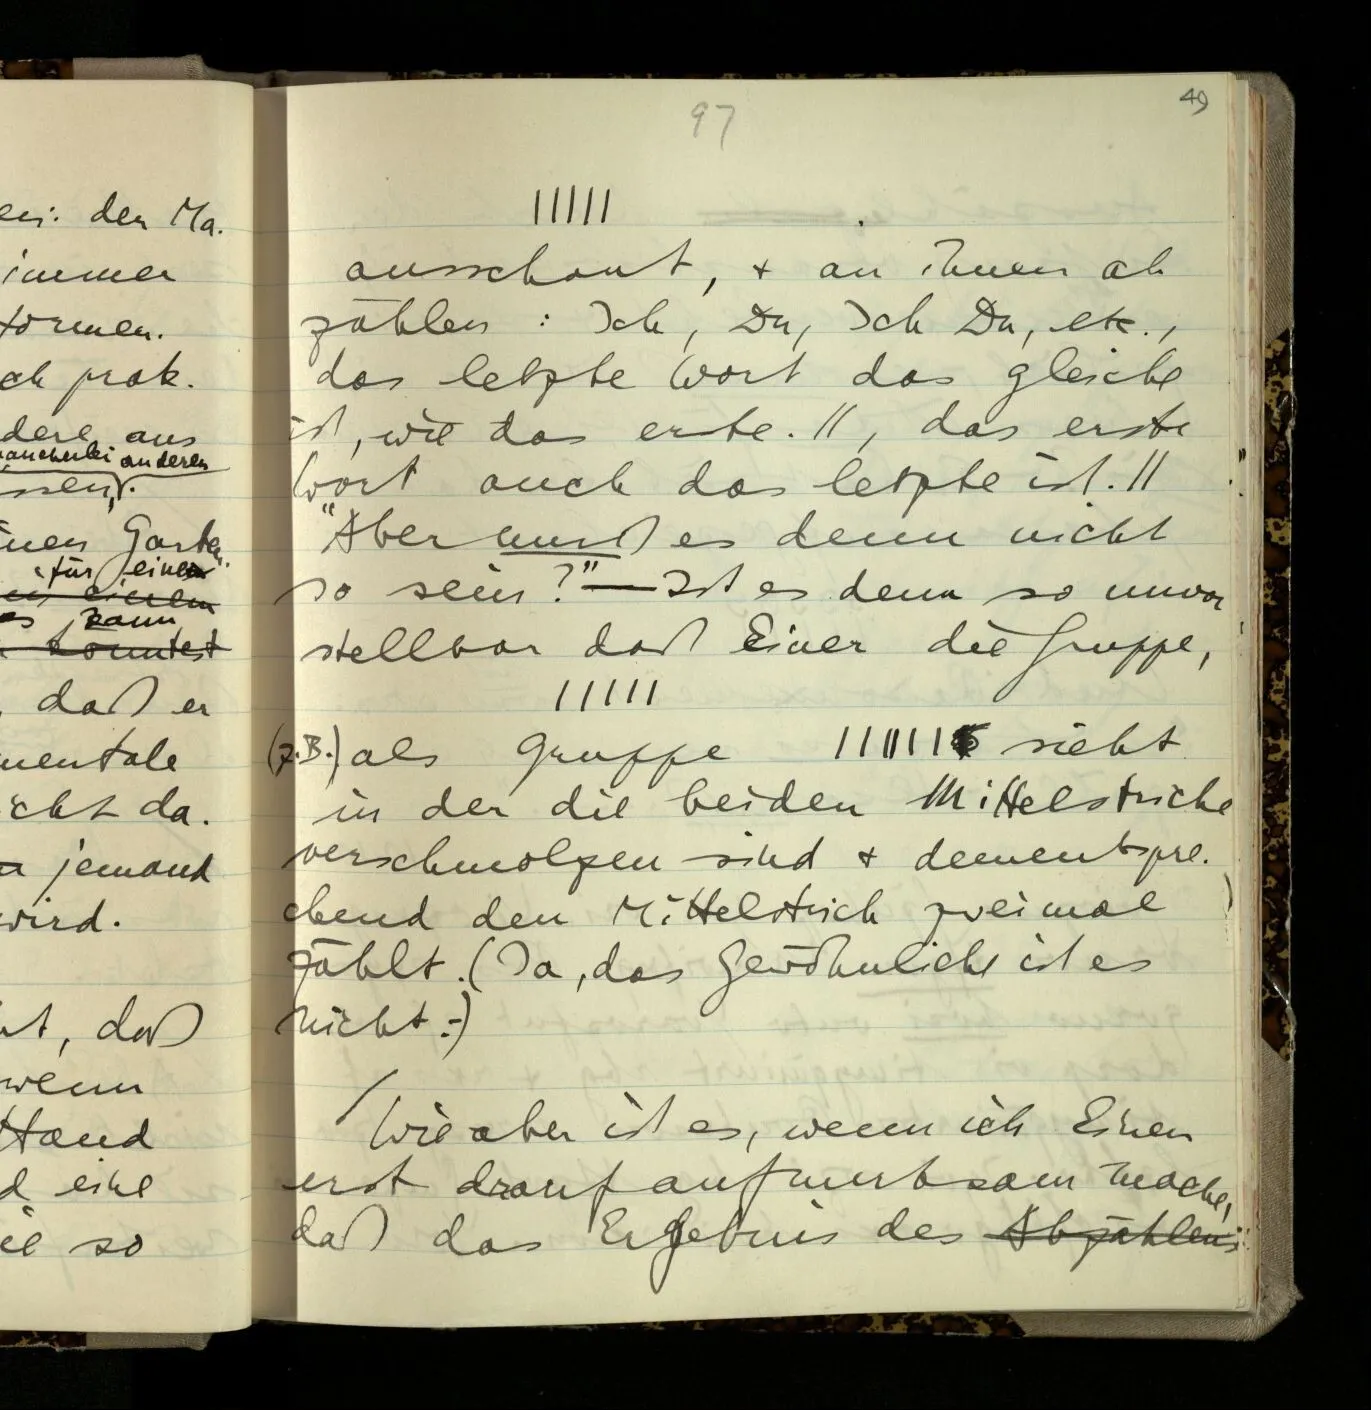 en: der Ma.
immer
formen.
ch prak.
dere aus
mancherlei anderen
ssen,.
inen Garten
"für einen"
in einem
es kann
könntest
, daß er
mentale
icht da.
jemand
wird.
nt, daß
wenn
Hand
d eine
ie so
97
49
|||||
ausschaut, + an ihnen ab
zählen: Ich, Du, Ich Du, etc.,
das letzte Wort das gleiche
ist, wie das erste. ||, das erste
Wort auch das letzte ist. ||
"Aber muß es denn nicht
so sein?" — Ist es denn so unvor
stellbar daß Einer die Gruppe,
|||||
(z.B.) als Gruppe |||||| sieht
in der die beiden Mittelstriche
verschmolzen sind + dementspre.
chend den Mittelstrich zweimal
zählt. (Ja, das Gewöhnliche ist es
nicht.–)
/ Wie aber ist es, wenn ich Einen
erst drauf aufmerksam mache,
daß das Ergebnis des Abzählens